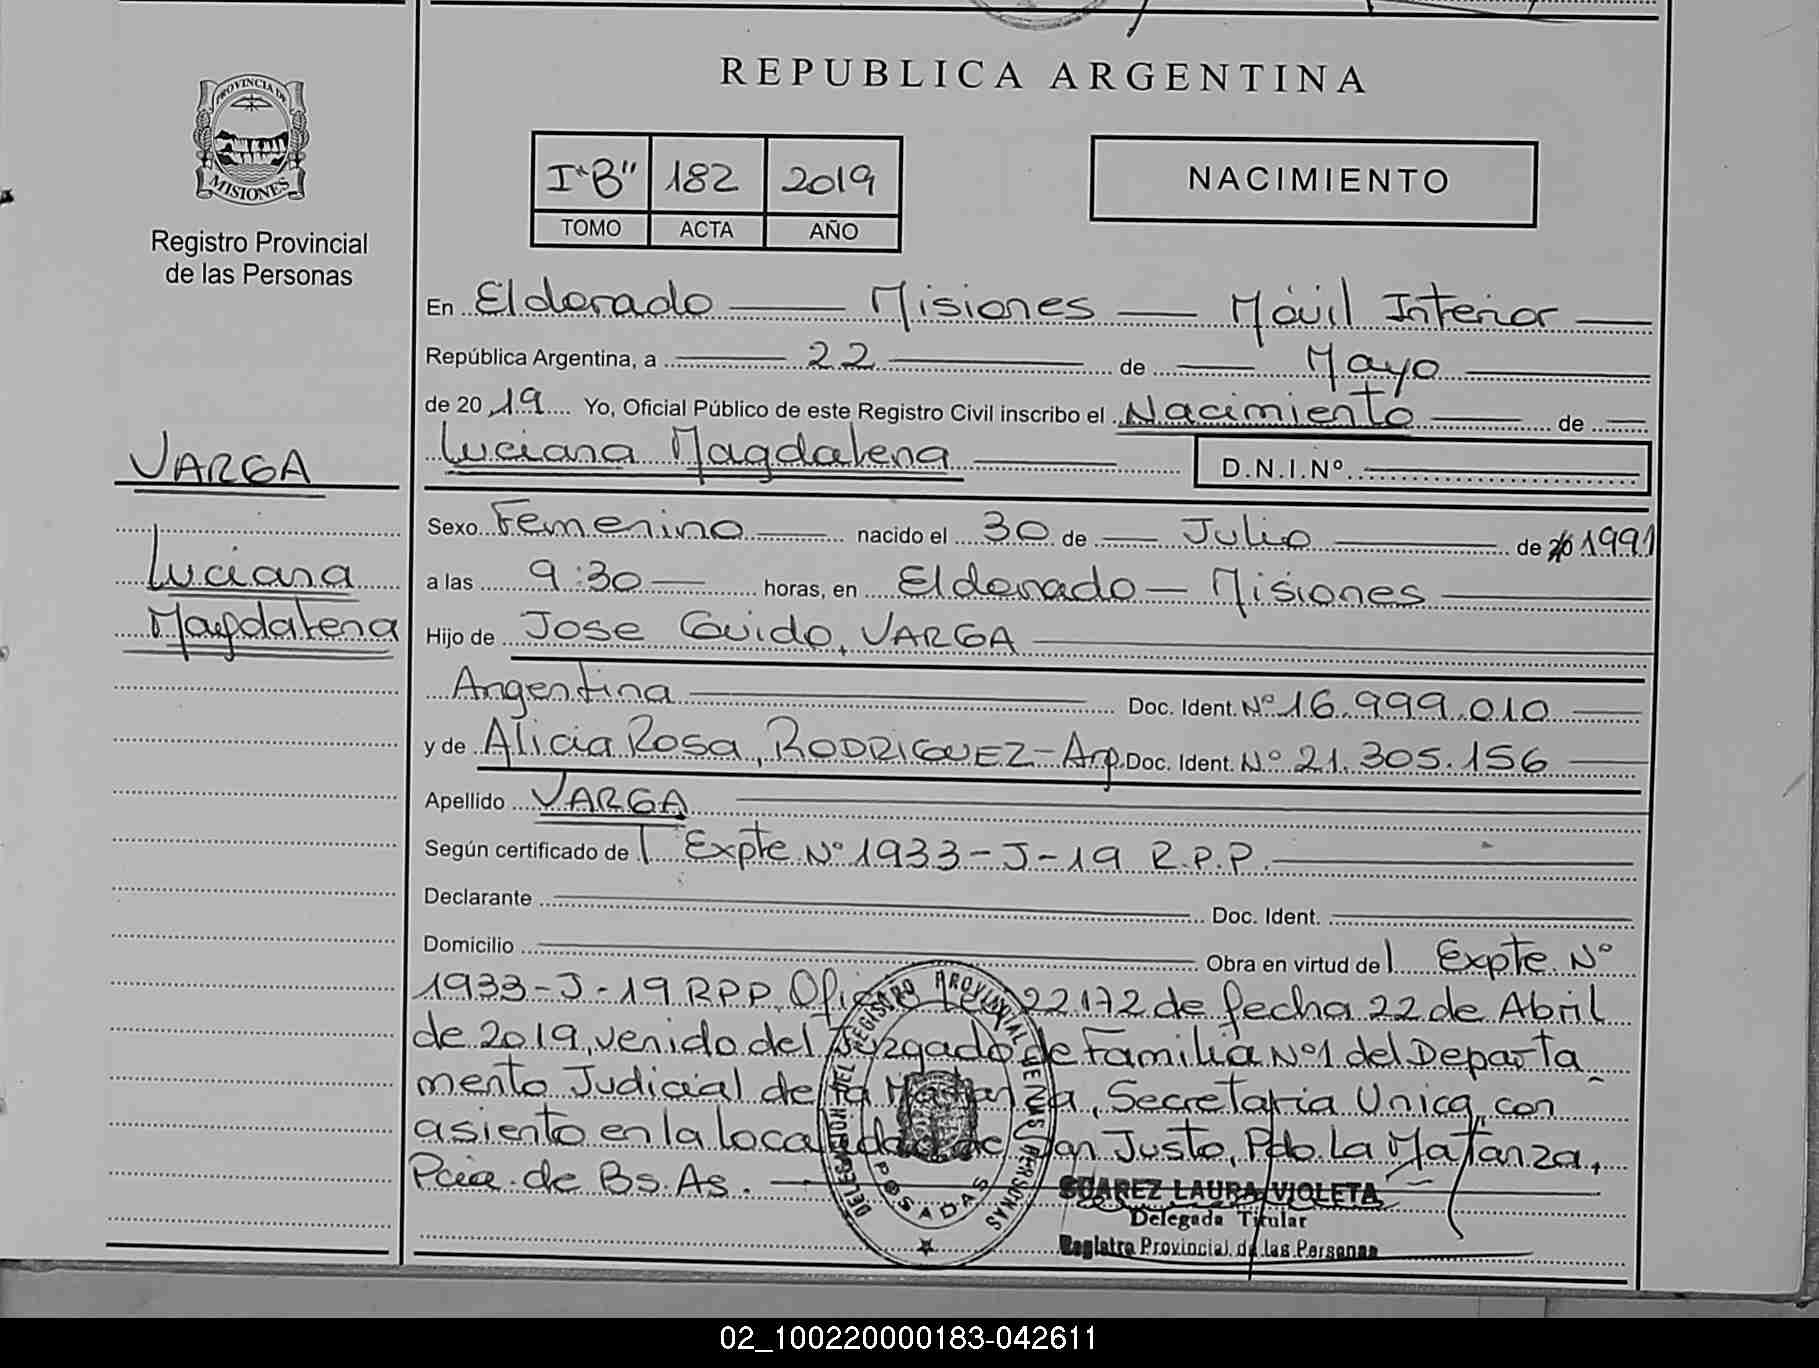 REPUBLICA ARGENTINA
PROVINCIA DE
MISIONES
Registro Provincial
de las Personas
I "B" 182 2019
TOMO ACTA AÑO
NACIMIENTO
VARGA
Luciana
Magdalena
En Eldorado — Misiones — Móvil Interior —
República Argentina, a — 22 — de — Mayo —
de 20 19 Yo, Oficial Público de este Registro Civil inscribo el Nacimiento — de —
Luciana Magdalena — D.N.I.Nº
Sexo Femenino — nacido el 30 de — Julio — de 1991
a las 9:30 — horas, en Eldorado — Misiones —
Hijo de Jose Guido, VARGA —
Argentina — Doc. Ident. Nº 16.999.010 —
y de Alicia Rosa, RODRIGUEZ - Arg. Doc. Ident. Nº 21.305.156 —
Apellido VARGA —
Según certificado de l Expte Nº 1933-J-19 R.P.P. —
Declarante — Doc. Ident. —
Domicilio — Obra en virtud de l Expte. Nº
1933-J-19 R.P.P. 22172 de fecha 22 de Abril
de 2019, venido del Juzgado de Familia Nº1 del Departa-
mento Judicial de la Matanza, Secretaria Unica, con
asiento en la localidad de San Justo, Pdo. La Matanza,
Pcia. de Bs. As. —
DELEGACION DEL REGISTRO PROVINCIAL DE LAS PERSONAS
POSADAS
SUAREZ LAURA VIOLETA
Delegada Titular
Registro Provincial de las Personas
02_100220000183-042611